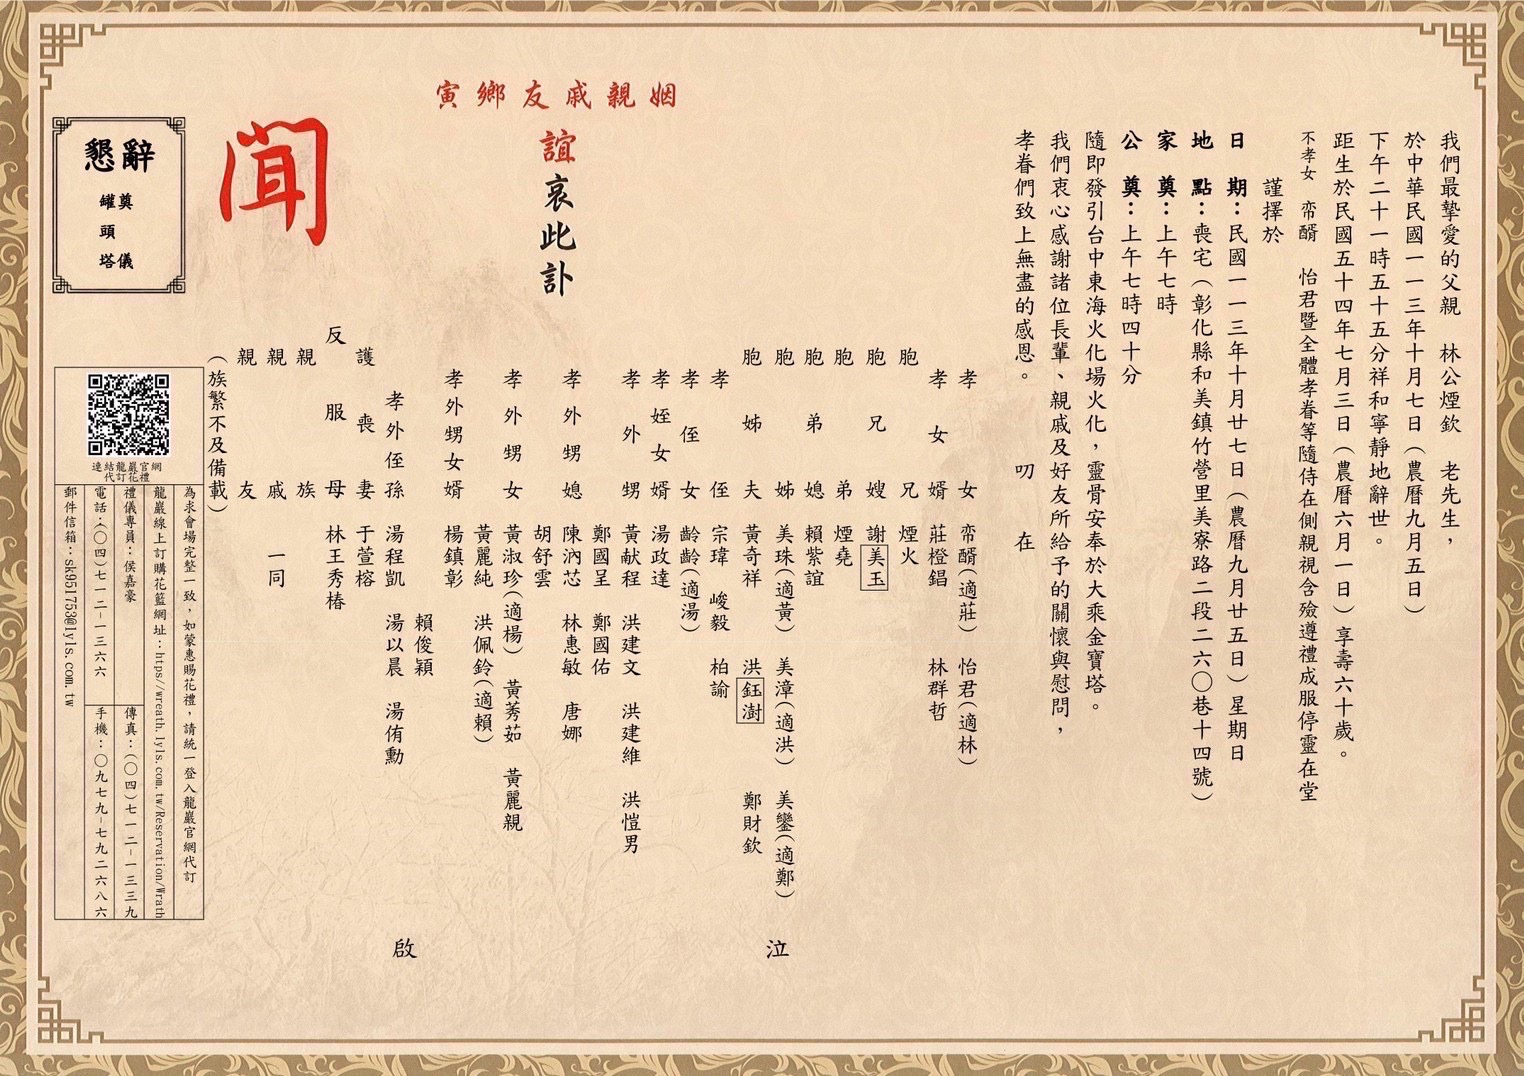 我們最摯愛的父親　林公煙欽　老先生，
於中華民國一一三年十月七日（農曆九月五日）
下午二十一時五十五分祥和寧靜地辭世。
距生於民國五十四年七月三日（農曆六月一日）享壽六十歲。
不孝女　帟醑　怡君暨全體孝眷等隨侍在側親視含殮遵禮成服停靈在堂
謹擇於
日　期：民國一一三年十月廿七日（農曆九月廿五日）星期日
地　點：喪宅（彰化縣和美鎮竹營里美寮路二段二六〇巷十四號）
家　奠：上午七時
公　奠：上午七時四十分
隨即發引台中東海火化場火化，靈骨安奉於大乘金寶塔。
我們衷心感謝諸位長輩、親戚及好友所給予的關懷與慰問，
孝眷們致上無盡的感恩。　　　叨　在
姻親戚友鄉寅
誼哀此訃
聞
孝　女　帟醑（適莊）　怡君（適林）
孝　女　婿　莊橙錩　林群哲
胞　兄　煙火
胞　兄　嫂　謝美玉
胞　弟　煙堯
胞　弟　媳　賴紫誼
胞　姊　美珠（適黃）　美漳（適洪）　美鑾（適鄭）
胞　姊　夫　黃奇祥　洪鈺澍　鄭財欽
孝　侄　宗瑋　峻毅　柏諭
孝　侄　女　齡齡（適湯）
孝　姪　女　婿　湯政達
孝　外　甥　黃献程　洪建文　洪建維　洪愷男
鄭國呈　鄭國佑
孝　外　甥　媳　陳汭芯　林惠敏　唐娜
胡舒雲
孝　外　甥　女　黃淑珍（適楊）　黃莠茹　黃麗親
黃麗純　洪佩鈴（適賴）
孝　外　甥　女　婿　楊鎮彰
賴俊穎
孝　外　侄　孫　湯程凱　湯以晨　湯侑勳
護　喪　妻　于萱榕
反　服　母　林王秀椿
親　族
親　戚　一同
親　友
（族繁不及備載）
泣
啟
懇辭
奠儀
罐頭塔
連結龍巖官網
代訂花禮
為求會場完整一致，如蒙惠賜花禮，請統一登入龍巖官網代訂
龍巖線上訂購花籃網址：https//wreath.lyls.com.tw/Reservation/Wrath
禮儀專員：侯嘉豪
傳真：（〇四）七一二－一三三九
電話：（〇四）七一二－一三六六
手機：〇九七九－七九二六八六
郵件信箱：sk951753@lyls.com.tw